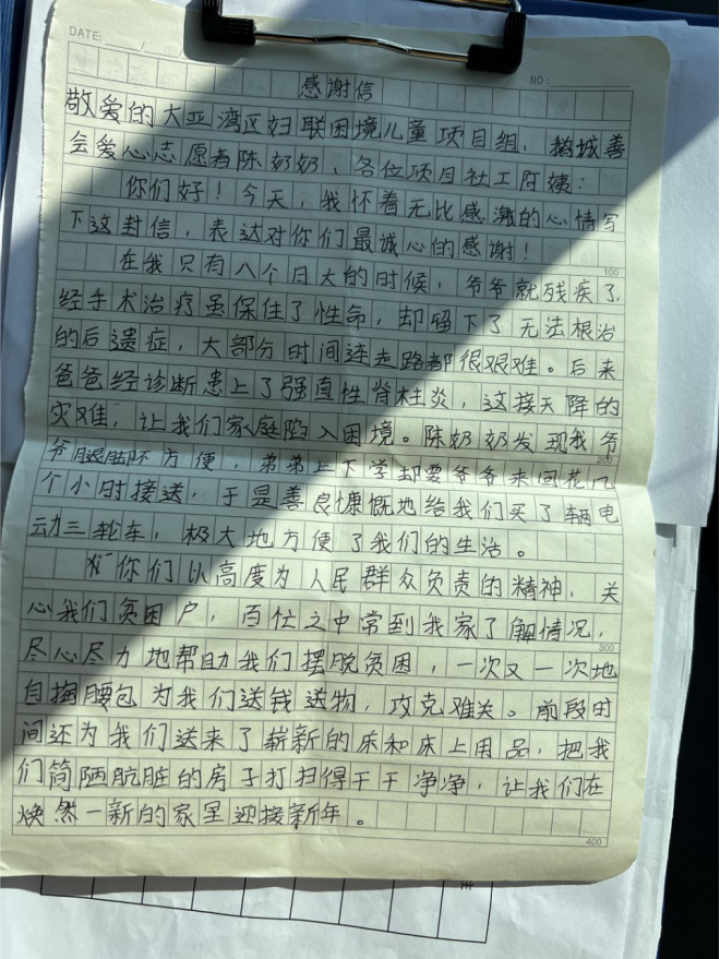 DATE: ____/____/____
NO: ____________
感谢信
敬爱的大亚湾区妇联困境儿童项目组、鹅城善
会爱心志愿者陈奶奶、各位项目社工阿姨：
你们好！今天，我怀着无比感激的心情写
下这封信，表达对你们最诚心的感谢！
100
在我只有八个月大的时候，爷爷就残疾了，
经手术治疗虽保住了性命，却留下了无法根治
的后遗症，大部分时间连走路都很艰难。后来
爸爸经诊断患上了强直性脊柱炎，这接天降的
灾难，让我们家庭陷入困境。陈奶奶发现我爷
200
爷腿脚不方便，弟弟上下学却要爷爷来回花几
个小时接送，于是善良慷慨地给我们买了辆电
动三轮车，极大地方便了我们的生活。
你们以高度为人民群众负责的精神，关
心我们贫困户，百忙之中常到我家了解情况，
300
尽心尽力地帮助我们摆脱贫困，一次又一次地
自掏腰包为我们送钱送物，攻克难关。前段时
间还为我们送来了崭新的床和床上用品，把我
们简陋肮脏的房子打扫得干干净净，让我们在
焕然一新的家里迎接新年。
400